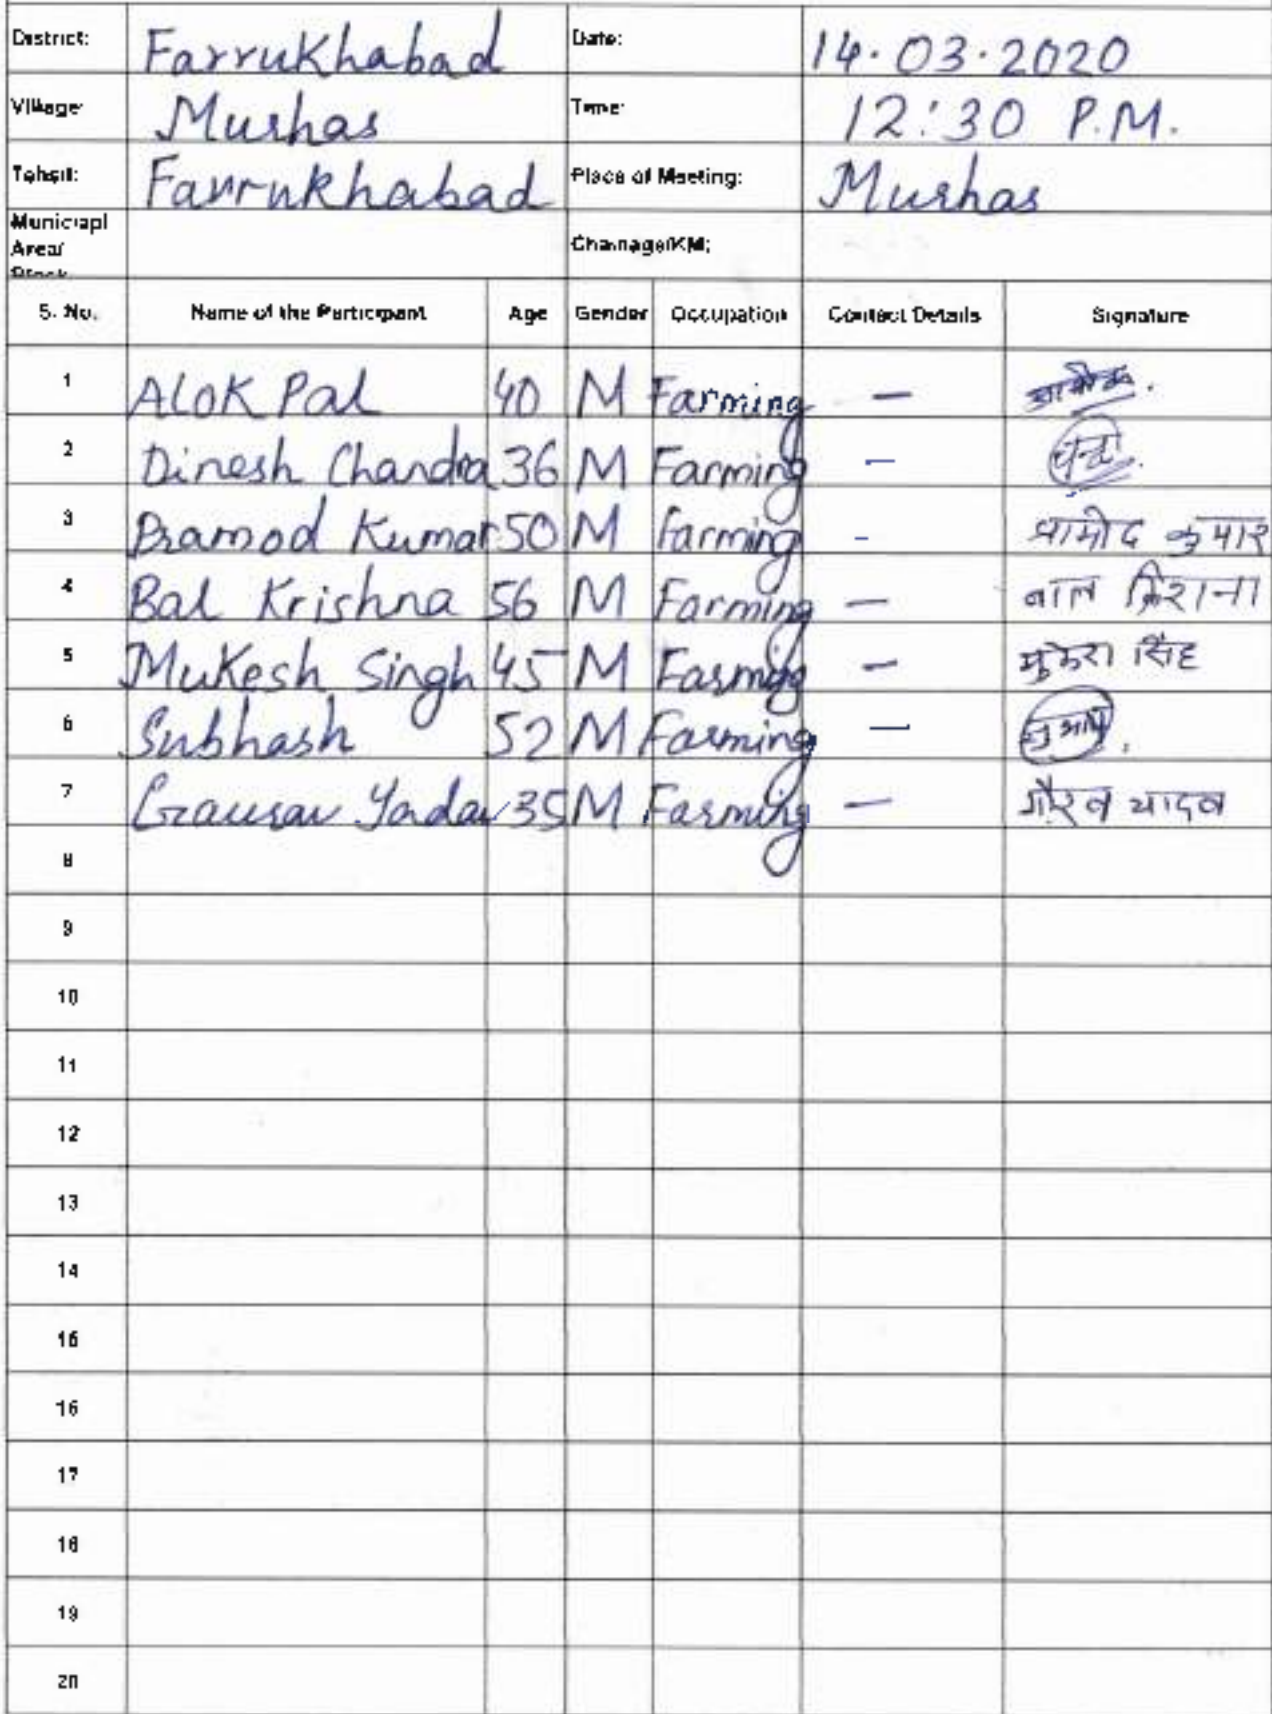 District: Farrukhabad Date: 14.03.2020
Village: Murhas Time: 12:30 P.M.
Tehsil: Farrukhabad Place of Meeting: Murhas
Municiapl Area/ Block Chainage/KM:
S. No. Name of the Participant Age Gender Occupation Contact Details Signature
1 Alok Pal 40 M Farming —
2 Dinesh Chandra 36 M Farming —
3 Pramod Kumar 50 M Farming - प्रामोद कुमार
4 Bal Krishna 56 M Farming — बाल
5 Mukesh Singh 45 M Farming — मुकेश सिंह
6 Subhash 52 M Farming —
7 Gaurav Yadav 35 M Farming — गौरव यादव
8
9
10
11
12
13
14
15
16
17
18
19
20